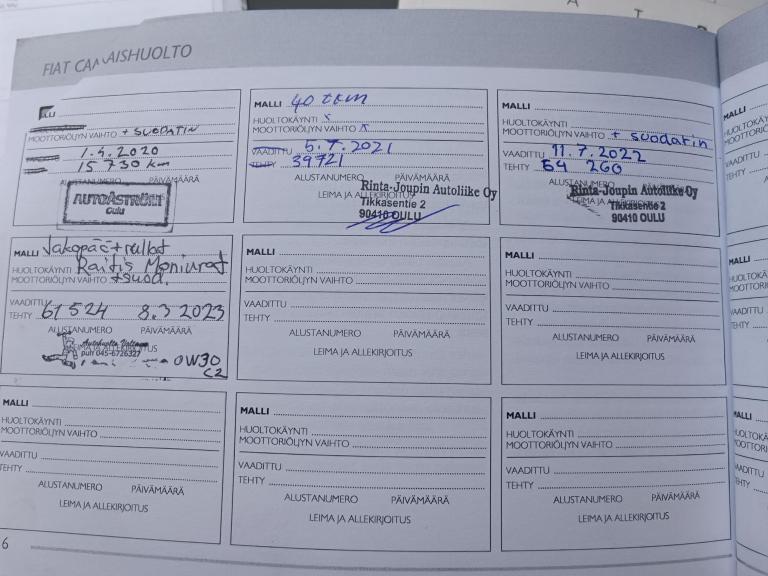 FIAT CA
AISHUOLTO
MOOTTORIÖLJYN VAIHTO + SUODATIN
1.4.2020
15 730 km
ALUSTANUMERO PÄIVÄMÄÄRÄ
AUTOÅSTRÖM
Oulu
MALLI 40 tkm
HUOLTOKÄYNTI x
MOOTTORIÖLJYN VAIHTO x
VAADITTU 5.7.2021
TEHTY 39721
ALUSTANUMERO PÄIVÄMÄÄRÄ
LEIMA JA ALLEKIRJOITUS
Rinta-Joupin Autoliike Oy
Tikkasentie 2
90410 OULU
MALLI
HUOLTOKÄYNTI
MOOTTORIÖLJYN VAIHTO + suodatin
VAADITTU 11.7.2022
TEHTY 54 260
Rinta-Joupin Autoliike Oy
Tikkasentie 2
90410 OULU
MALLI Jakopää + rullat
HUOLTOKÄYNTI Raitis Moniurat
MOOTTORIÖLJYN VAIHTO + suod.
VAADITTU
TEHTY 61 524 8.3 2023
ALUSTANUMERO PÄIVÄMÄÄRÄ
puh 045-6726327
0W30
C2
MALLI
HUOLTOKÄYNTI
MOOTTORIÖLJYN VAIHTO
VAADITTU
TEHTY
ALUSTANUMERO PÄIVÄMÄÄRÄ
LEIMA JA ALLEKIRJOITUS
MALLI
HUOLTOKÄYNTI
MOOTTORIÖLJYN VAIHTO
VAADITTU
TEHTY
ALUSTANUMERO PÄIVÄMÄÄRÄ
LEIMA JA ALLEKIRJOITUS
MALLI
HUOLTOKÄYNTI
MOOTTORIÖLJYN VAIHTO
VAADITTU
TEHTY
ALUSTANUMERO PÄIVÄMÄÄRÄ
LEIMA JA ALLEKIRJOITUS
MALLI
HUOLTOKÄYNTI
MOOTTORIÖLJYN VAIHTO
VAADITTU
TEHTY
ALUSTANUMERO PÄIVÄMÄÄRÄ
LEIMA JA ALLEKIRJOITUS
MALLI
HUOLTOKÄYNTI
MOOTTORIÖLJYN VAIHTO
VAADITTU
TEHTY
ALUSTANUMERO PÄIVÄMÄÄRÄ
LEIMA JA ALLEKIRJOITUS
6